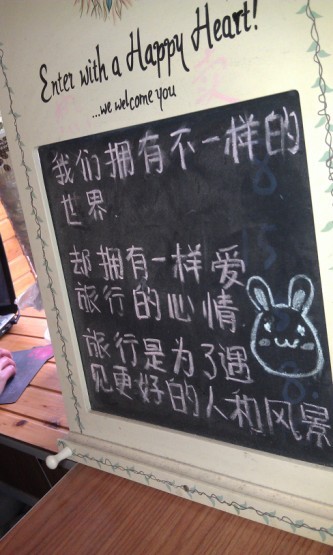 Enter with a Happy Heart!
...we welcome you
我们拥有不一样的
世界.
却拥有一样爱
旅行的心情
旅行是为了遇
见更好的人和风景